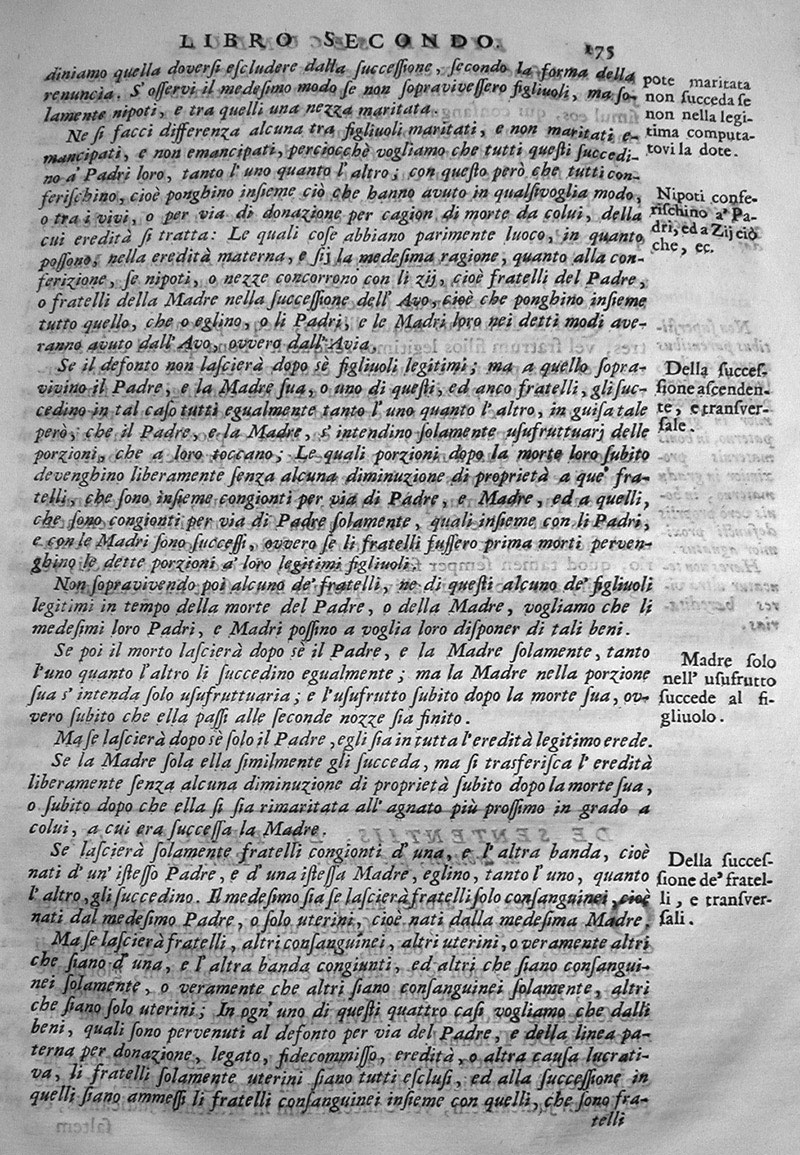 LIBRO SECONDO. 175
diniamo quella doverſi eſcludere dalla ſucceſſione, ſecondo la forma della
renuncia. S'oſſervi il medeſimo modo ſe non ſopraviveſſero figliuoli, ma ſo-
lamente nipoti, e tra quelli una nezza maritata.
Ne ſi facci differenza alcuna tra figliuoli maritati, e non maritati e-
mancipati, e non emancipati, perciocchè vogliamo che tutti queſti ſuccedi-
no a' Padri loro, tanto l'uno quanto l'altro; con queſto però che tutti con-
feriſchino, cioè ponghino inſieme ciò che hanno avuto in qualſivoglia modo,
o tra i vivi, o per via di donazione per cagion di morte da colui, della
cui eredità ſi tratta: Le quali coſe abbiano parimente luoco, in quanto
poſſono, nella eredità materna, e ſij la medeſima ragione, quanto alla con-
ferizione, ſe nipoti, o nezze concorrono con li zij, cioè fratelli del Padre,
o fratelli della Madre nella ſucceſſione dell' Avo, cioè che ponghino inſieme
tutto quello, che o eglino, o li Padri, e le Madri loro nei detti modi ave-
ranno avuto dall' Avo, ovvero dall' Avia,
Se il defonto non laſcierà dopo sè figliuoli legitimi; ma a quello ſopra-
vivino il Padre, e la Madre ſua, o uno di queſti, ed anco fratelli, gli ſuc-
cedino in tal caſo tutti egualmente tanto l'uno quanto l'altro, in guiſa tale
però, che il Padre, e la Madre, s'intendino ſolamente uſufruttuarj delle
porzioni, che a loro toccano; Le quali porzioni dopo la morte loro ſubito
devenghino liberamente ſenza alcuna diminuzione di proprietà a que' fra-
telli, che ſono inſieme congionti per via di Padre, e Madre, ed a quelli,
che ſono congionti per via di Padre ſolamente, quali inſieme con li Padri,
e con le Madri ſono ſucceſſi, ovvero ſe li fratelli fuſſero prima morti perven-
ghino le dette porzioni a' loro legitimi figliuoli.
Non ſopravivendo poi alcuno de' fratelli, ne di queſti alcuno de' figliuoli
legitimi in tempo della morte del Padre, o della Madre, vogliamo che li
medeſimi loro Padri, e Madri poſſino a voglia loro diſponer di tali beni.
Se poi il morto laſcierà dopo sè il Padre, e la Madre ſolamente, tanto
l'uno quanto l'altro li ſuccedino egualmente; ma la Madre nella porzione
ſua s'intenda ſolo uſufruttuaria; e l'uſufrutto ſubito dopo la morte ſua, ov-
vero ſubito che ella paſſi alle ſeconde nozze ſia finito.
Ma ſe laſcierà dopo sè ſolo il Padre, egli ſia in tutta l'eredità legitimo erede.
Se la Madre ſola ella ſimilmente gli ſucceda, ma ſi trasferiſca l'eredità
liberamente ſenza alcuna diminuzione di proprietà ſubito dopo la morte ſua,
o ſubito dopo che ella ſi ſia rimaritata all' agnato più proſſimo in grado a
colui, a cui era ſucceſſa la Madre.
Se laſcierà ſolamente fratelli congionti d'una, e l'altra banda, cioè
nati d'un' iſteſſo Padre, e d'una iſteſſa Madre, eglino, tanto l'uno, quanto
l'altro, gli ſuccedino. Il medeſimo ſia ſe laſcierà fratelli ſolo conſanguinei, cioè
nati dal medeſimo Padre, o ſolo uterini, cioè nati dalla medeſima Madre.
Ma ſe laſcierà fratelli, altri conſanguinei, altri uterini, o veramente altri
che ſiano d'una, e l'altra banda congiunti, ed altri che ſiano conſangui-
nei ſolamente, o veramente che altri ſiano conſanguinei ſolamente, altri
che ſiano ſolo uterini; In ogn' uno di queſti quattro caſi vogliamo che dalli
beni, quali ſono pervenuti al defonto per via del Padre, e della linea pa-
terna per donazione, legato, fidecommiſſo, eredità, o altra cauſa lucrati-
va, li fratelli ſolamente uterini ſiano tutti eſcluſi, ed alla ſucceſſione in
quelli ſiano ammeſſi li fratelli conſanguinei inſieme con quelli, che ſono fra-
telli
pote maritata
non ſucceda ſe
non nella legi-
tima computa-
tovi la dote.
Nipoti confe-
riſchino a' Pa-
dri, ed a Zij ciò
che, ec.
Della ſucceſ-
ſione aſcenden-
te, e tranſver-
ſale.
Madre ſolo
nell' uſufrutto
ſuccede al fi-
gliuolo.
Della ſucceſ-
ſione de' fratel-
li, e tranſver-
ſali.